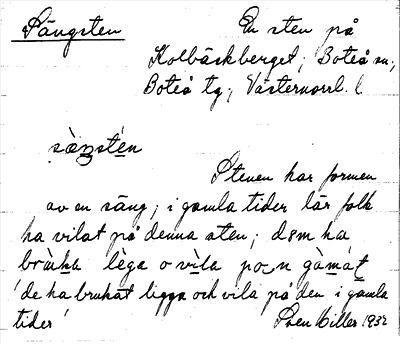 Sängsten
En sten på
Kolbäckberget; Boteå sn.,
Boteå tg., Västernorrl. l
sæŋstén
Stenen har formen
av en säng; i gamla tider lär folk
ha vilat på denna sten; dɵm ha
brùka lèga o vìla pɔ-n gàmát
'de ha brukat ligga och vila på den i gamla
tider'
Sven Hiller 1932